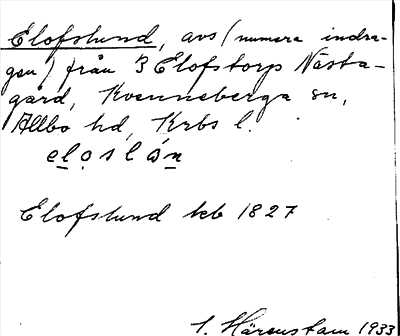 Elofslund, avs (numera indra-
gen) från 3 Elofstorp Västa-
gård, Kvenneberga sn,
Allbo hd, Krbs l.
elọslón
Elofslund kb 1827
I. Härenstam 1933